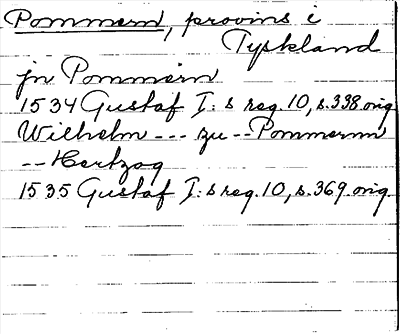 Pommern, provins i
Tyskland
jn Pommern
1534 Gustaf I:s reg. 10, s. 338 orig
Wilhelm --- zu -- Pommernn
-- Hertzog
1535 Gustaf I:s reg. 10, s. 369 orig.